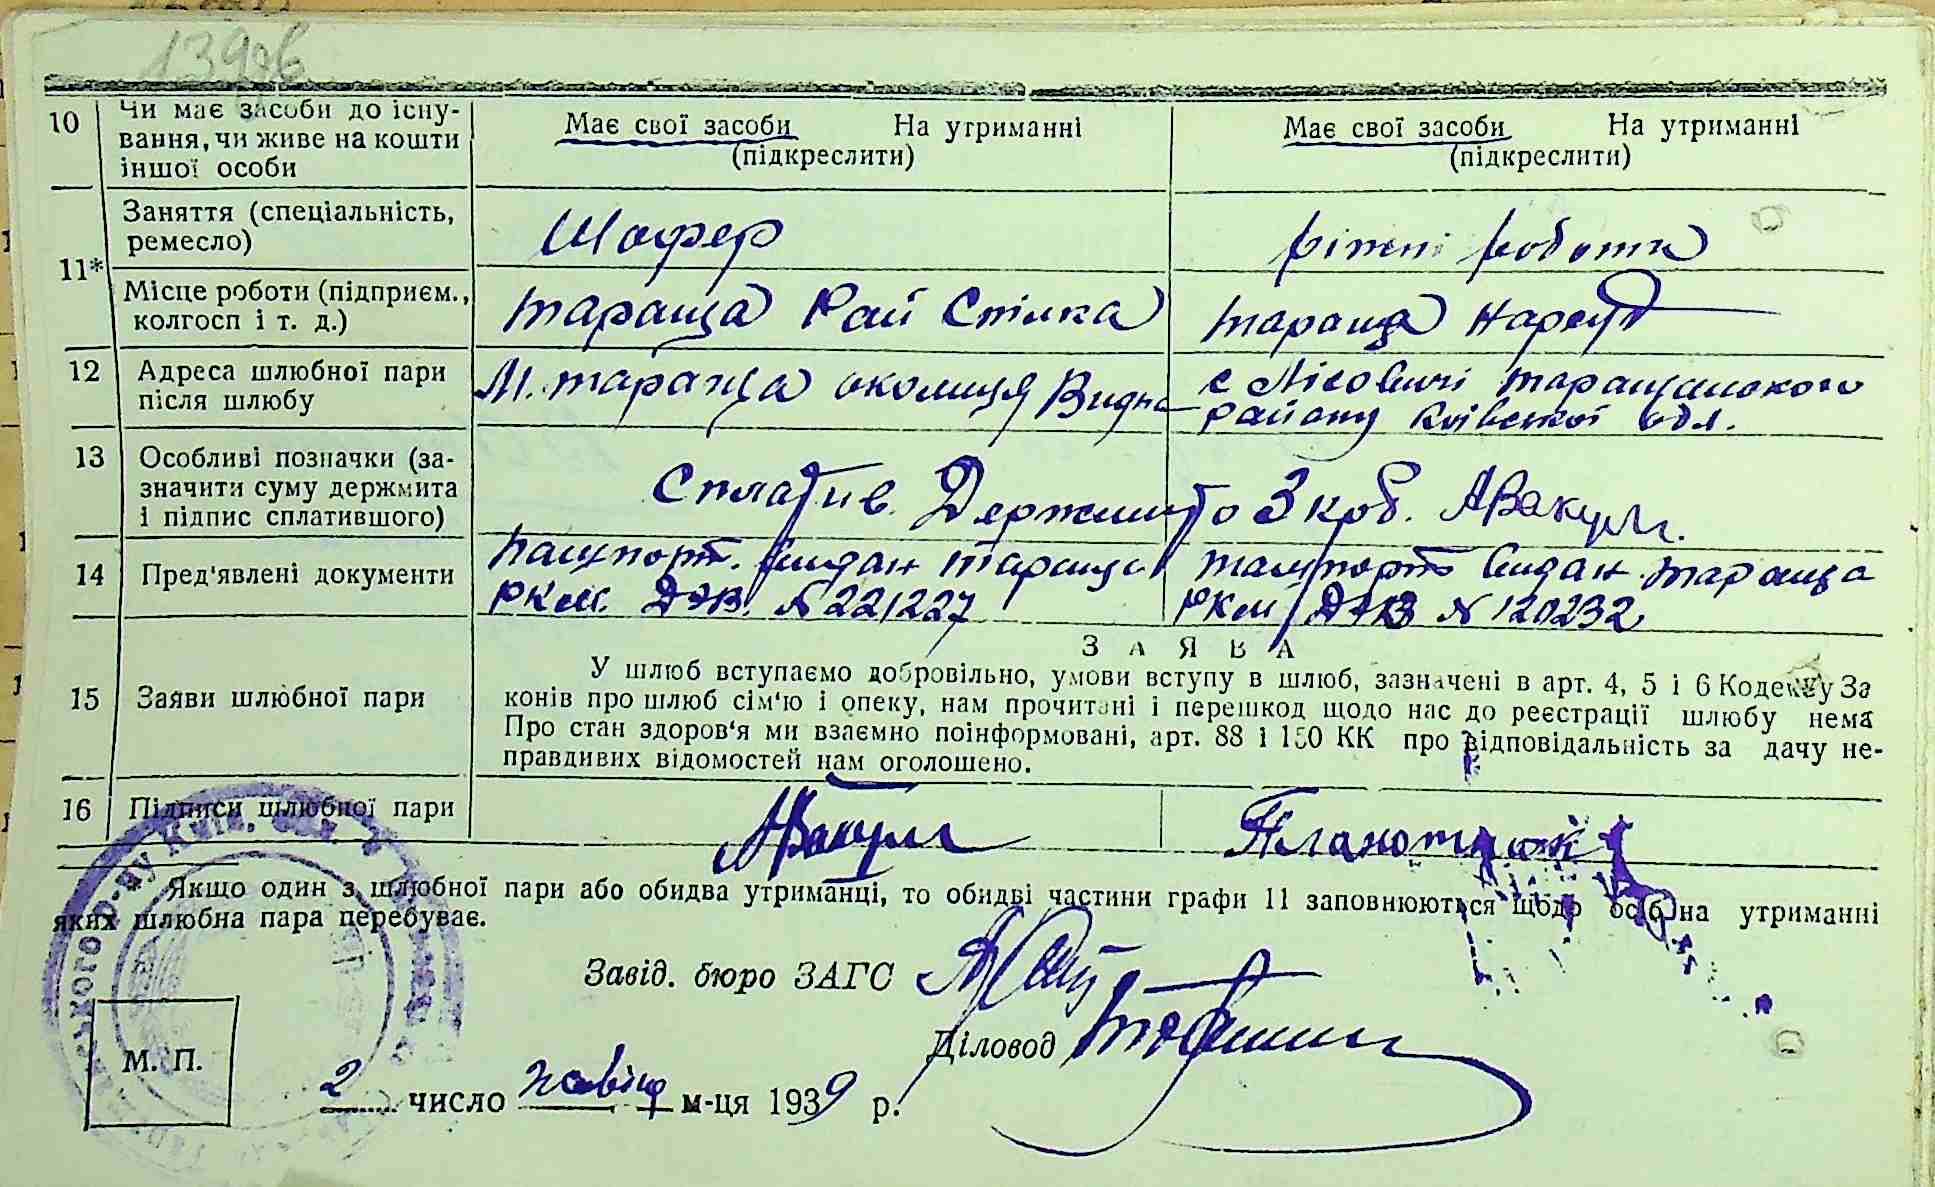 10
Чи має засоби до існу-
вання, чи живе на кошти
іншої особи
Має свої засоби На утриманні
(підкреслити)
Має свої засоби На утриманні
(підкреслити)
11*
Заняття (спеціальність,
ремесло)
Шофер
ріжні роботи
Місце роботи (підприєм.,
колгосп і т. д.)
Тараща Рай Спілка
Тараща Нарсуд
12
Адреса шлюбної пари
після шлюбу
М. Тараща околиця
с Лісовичі Таращанського
району Київської обл.
13
Особливі позначки (за-
значити суму держмита
і підпис сплатившого)
Сплатив. Держмито 3 крб. АВакул
14
Пред'явлені документи
Пашпорт. видан Тараща
РКМ. ДЭВ. № 221227
Пашпорт видан Тараща
РКМ ДЭВ № 120232
15
Заяви шлюбної пари
ЗАЯВА
У шлюб вступаємо добровільно, умови вступу в шлюб, зазначені в арт. 4, 5 і 6 Кодексу За
конів про шлюб сім'ю і опеку, нам прочитані і перешкод щодо нас до реєстрації шлюбу нема
Про стан здоров'я ми взаємно поінформовані, арт. 88 і 150 КК про відповідальність за дачу не-
правдивих відомостей нам оголошено.
16
Підписи шлюбної пари
АВакул
Якщо один з шлюбної пари або обидва утриманці, то обидві частини графи 11 заповнюються щодо осіб на утриманні
яких шлюбна пара перебуває.
Завід. бюро ЗАГС
Діловод
М. П.
2 число жовтня м-ця 1939 р.